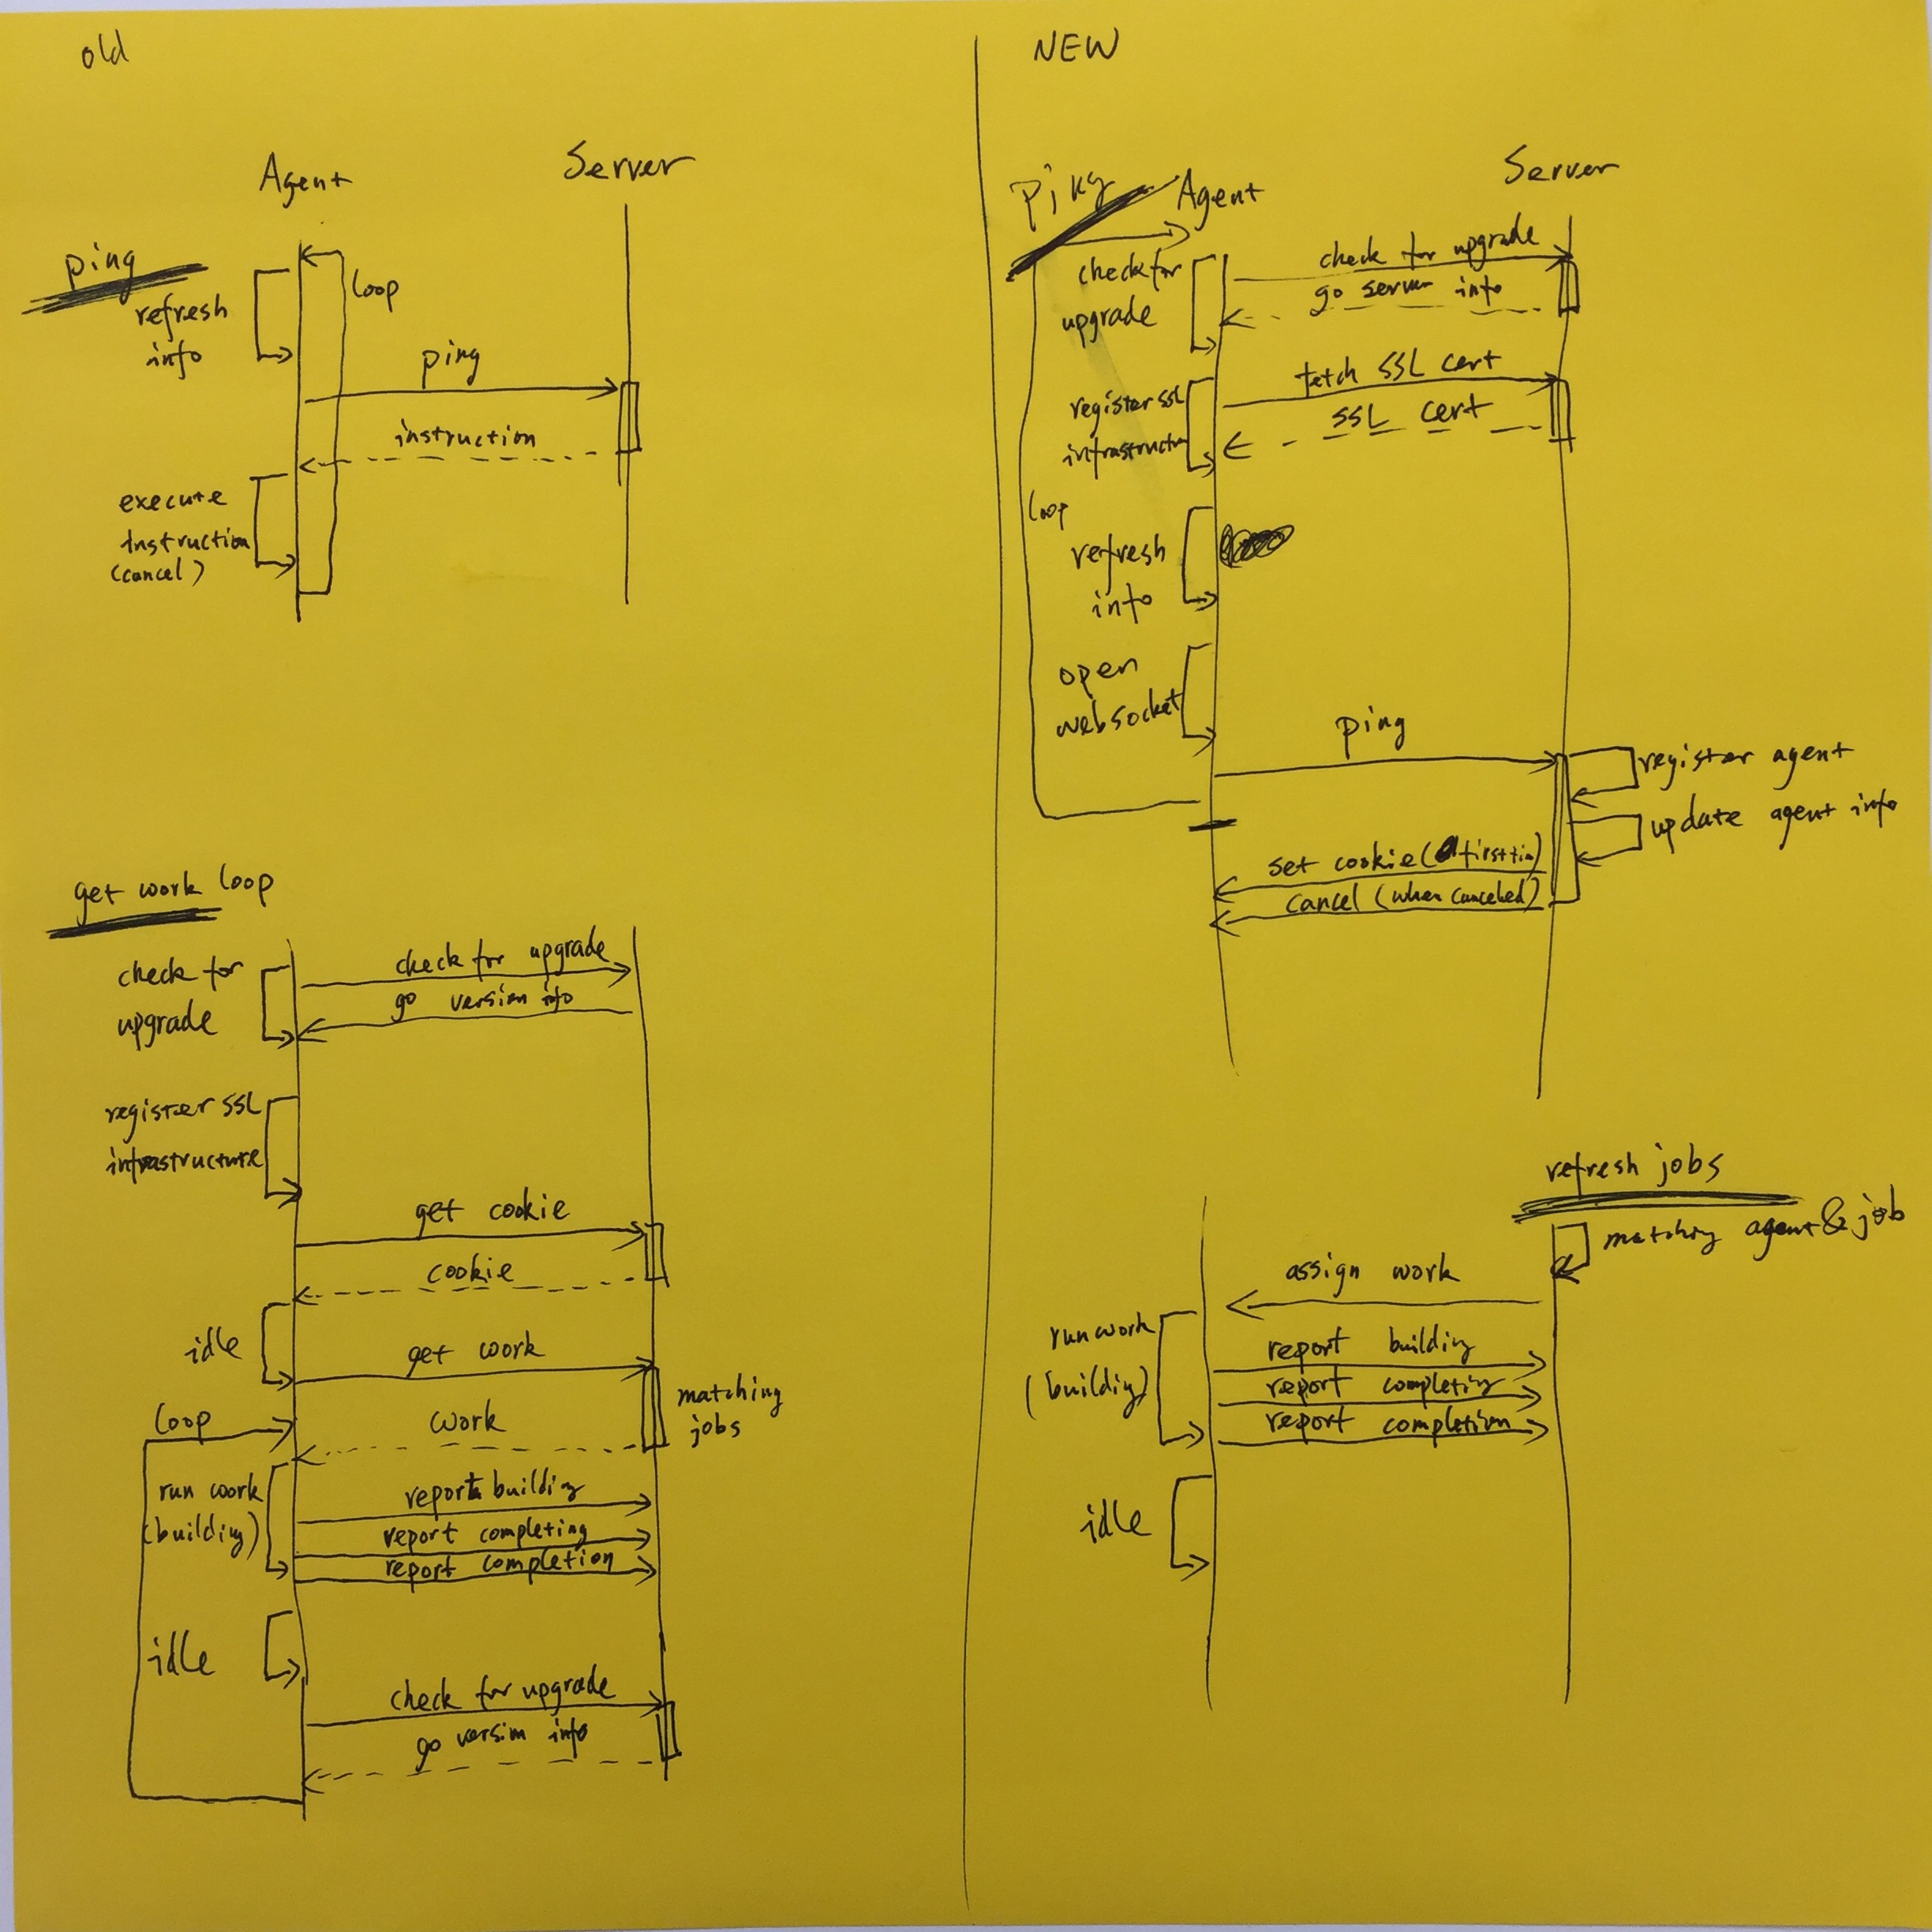 old
Agent
Server
ping
loop
refresh
info
ping
instruction
execute
instruction
(cancel)
get work loop
check for
upgrade
check for upgrade
go version info
register SSL
infrastructure
get cookie
cookie
idle
get work
matching
jobs
loop
work
run work
(building)
report building
report completing
report completion
idle
check for upgrade
go version info
NEW
ping
Agent
Server
check for
upgrade
check for upgrade
go server info
register SSL
infrastructur
fetch SSL cert
SSL cert
loop
refresh
info
open
websocket
ping
register agent
update agent info
set cookie (first tim)
cancel (when canceled)
refresh jobs
matching agent & job
assign work
run work
(building)
report building
report completing
report completion
idle